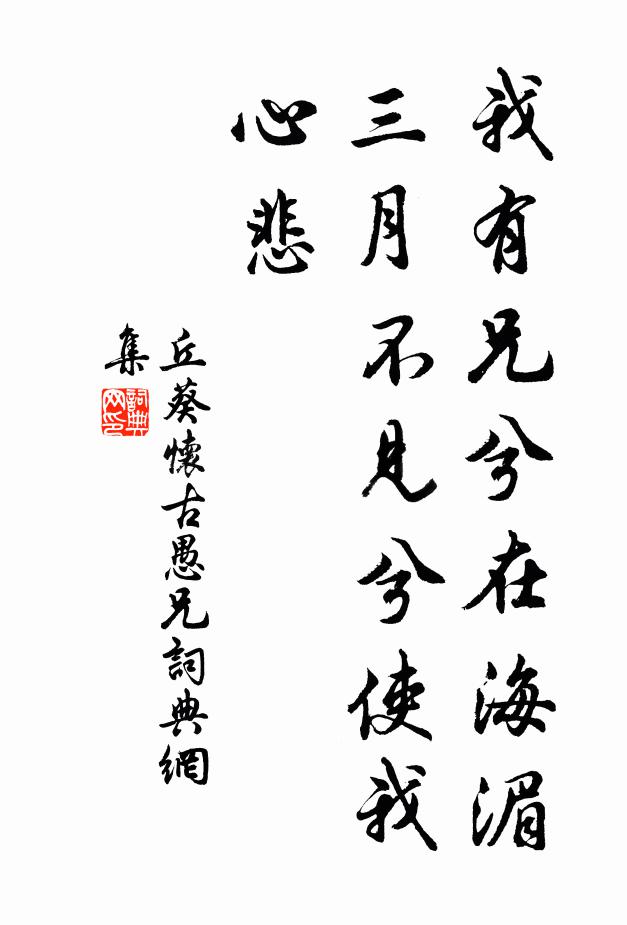 我有兄兮在海湄
三月不見兮使我
心悲
丘葵懷古愚兄詞典網
集
詞典網印